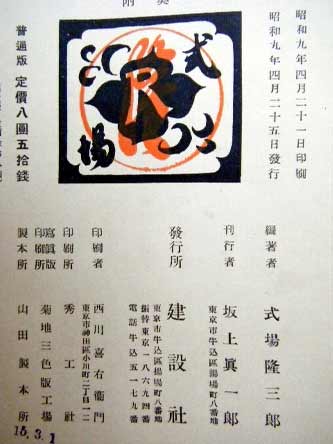 昭和九年四月二十一日印刷
昭和九年四月二十五日發行
式
場
R
普通版 定價八圓五拾錢
編著者 式場隆三郎
刊行者 坂上眞一郎
東京市牛込區揚場町八番地
發行所 建設社
東京市牛込區揚場町八番地
振替東京一八六九四番
電話牛込五一七九番
印刷者 西川喜右衞門
東京市神田區小川町二丁目一二
印刷所 秀工社
寫眞版印刷所 菊地三色版工場
製本所 山田製本所
15.3.1